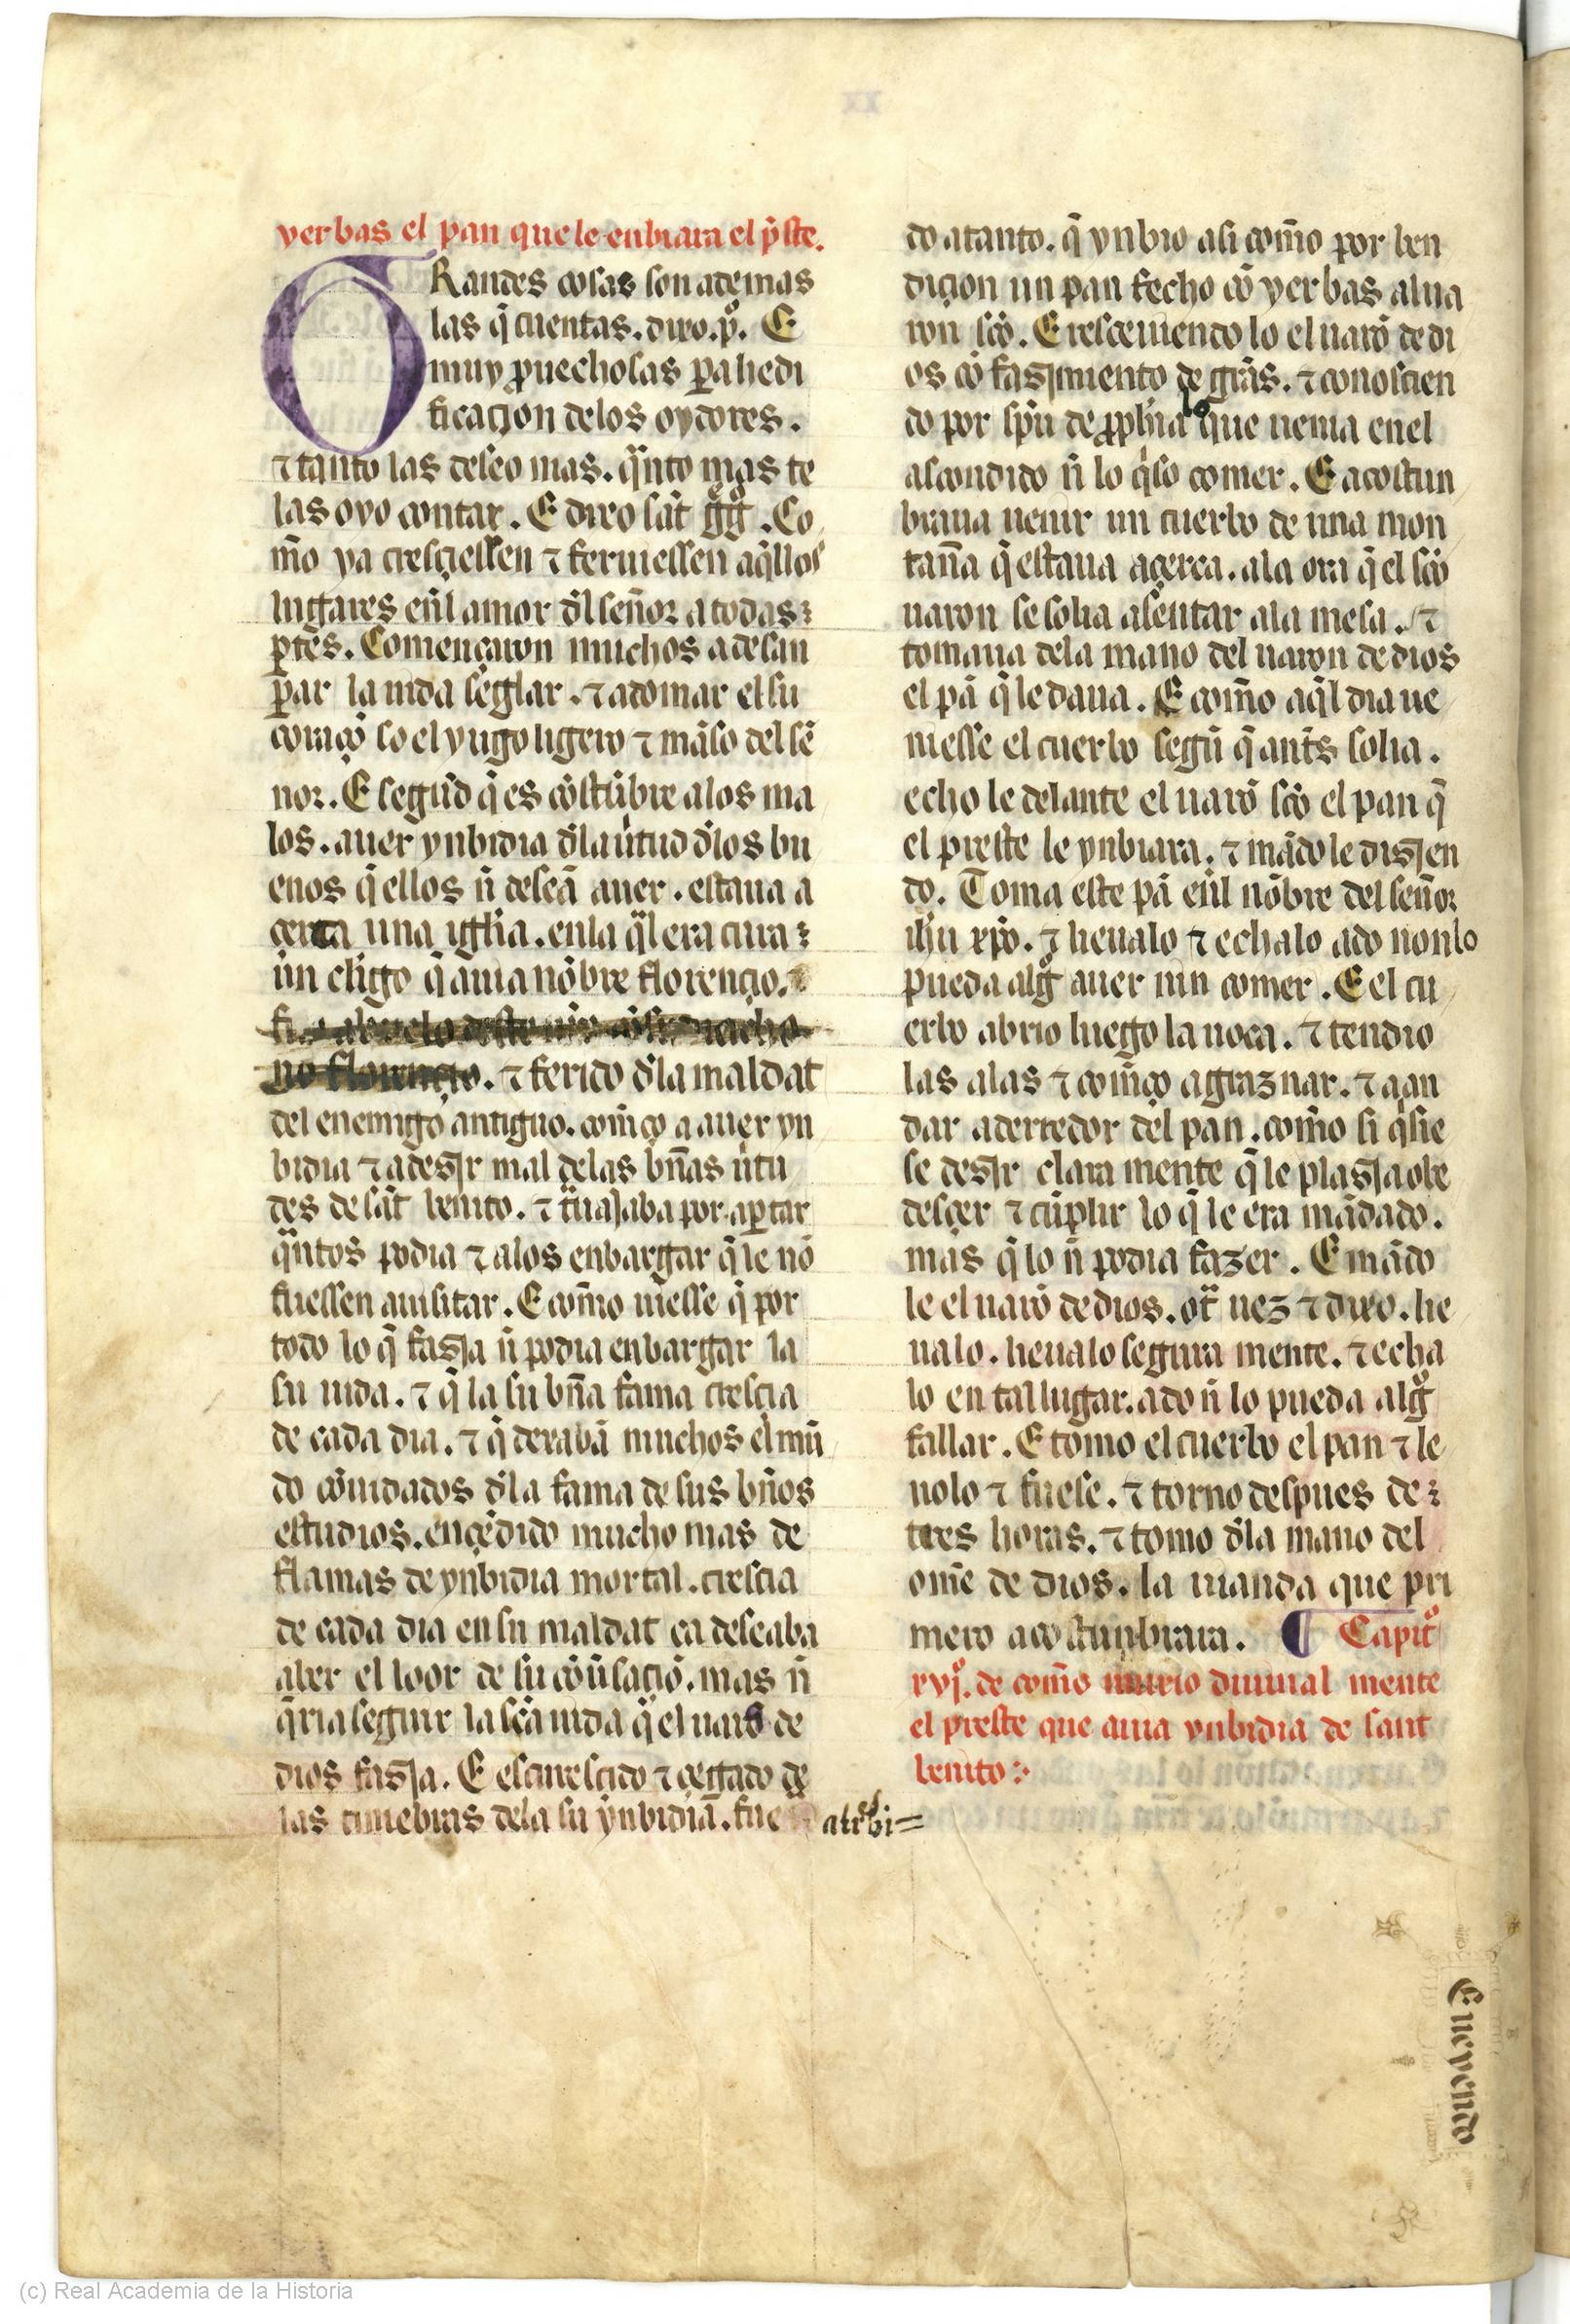 yerbas el pan que le enbiara el p̃ste.
GRandes cosas son ademas
las q̃ cuentas. dixo .pº. E
muy ꝓuechosas ꝑa hedi
ficaçion delos oydores.
⁊ tanto las deseo mas. qͣnto mas te
las oyo contar. E dixo sãt gͦgͦ. Co
m̃o ya cresçiessen ⁊ feruiessen aq̃llos
lugares eñl amor d̃l señor a todas
ꝑtes. Començaron muchos a desan
ꝑar la uida seglar. ⁊ a domar el su
coraçõ so el yugo ligero ⁊ mãso del sẽ
nor. E segũd q̃ es cõstũbre a los ma
los. auer ynbidia d̃la ũtud d̃los bu
enos q̃ ellos ñ deseã auer. estaua a
çerca una igłia. enla qͣl era cura
un cłigo q̃ auia nõbre florençio. ⁊
no florençio. ⁊ ferido d̃la maldat
del enemigo antiguo. com̃ço a auer yn
bidia ⁊ a desir mal delas bñas ũtu
des de sãt benito. ⁊ tͣuajaba por aꝑtar
qͣntos podia ⁊ alos enbargar q̃ le nõ
fuessen auisitar. E com̃o uiesse q̃ por
todo lo q̃ fasia ñ podia enbargar la
su uida. ⁊ q̃ la su bña fama cresçia
de cada dia. ⁊ q̃ dexabã muchos el mũ
do cõuidados d̃la fama de sus bños
estudios. ençẽdido mucho mas de
flamas de ynbidia mortal. crescia
de cada dia en su maldat ca deseaba
aber el loor de su cõũsaçiõ. mas ñ
q̃ria seguir la sc̃a uida q̃ el uarõ de
dios fasia. E escurescido ⁊ çegado de
las tiniebras dela su ynbidia. fue atrebi=
do atanto. q̃ ynbio asi com̃o por ben
diçion un pan fecho cõ yerbas al ua
ron sc̃o. E resçeuiendo lo el uarõ de di
os cõ fasimiento de grãs. ⁊ conoscien
do por sp̃u de ꝓph̃ia lo que uenia enel
ascondido ñ lo q̃so comer. E acostun
braua uenir un cuerbo de una mon
taña q̃ estaua açerca. ala ora q̃ el sc̃o
uaron se solia asentar ala mesa. ⁊
tomaua dela mano del uaron de dios
el pã q̃ le daua. E com̃o aq̃l dia ue
niesse el cuerbo segũ q̃ antẽs solia.
echo le delante el uarõ sc̃o el pan q̃
el preste le ynbiara. ⁊ mãdo le disien
do. Toma este pã eñl nõbre del señor
ih̃u xp̃o. ⁊ lieualo ⁊ echalo ado non lo
pueda algͦ auer nin comer. E el cu
erbo abrio luego la uoca. ⁊ tendio
las alas ⁊ com̃ço a graznar. ⁊ a an
dar aderredor del pan. com̃o si q̃sie
se desir clara mente q̃ le plasia obe
desçer ⁊ cũplir lo q̃ le era mãdado.
mas q̃ lo ñ podia fazer. E mãdo
le el uarõ de dios. otͣ uez ⁊ dixo. lie
ualo. lieualo segura mente. ⁊ echa
lo en tal lugar. ado ñ lo pueda algͦ
fallar. E tomo el cuerbo el pan ⁊ le
uolo ⁊ fuese. ⁊ torno despues de
tres horas. ⁊ tomo d̃la mano del
om̃e de dios. la uianda que pri
mero acostunbrara. ¶ Capitͦ
xvjͦ. de com̃o murio diuinal mente
el preste que auia ynbidia de sant
benito
E ueyendo
(c) Real Academia de la Historia